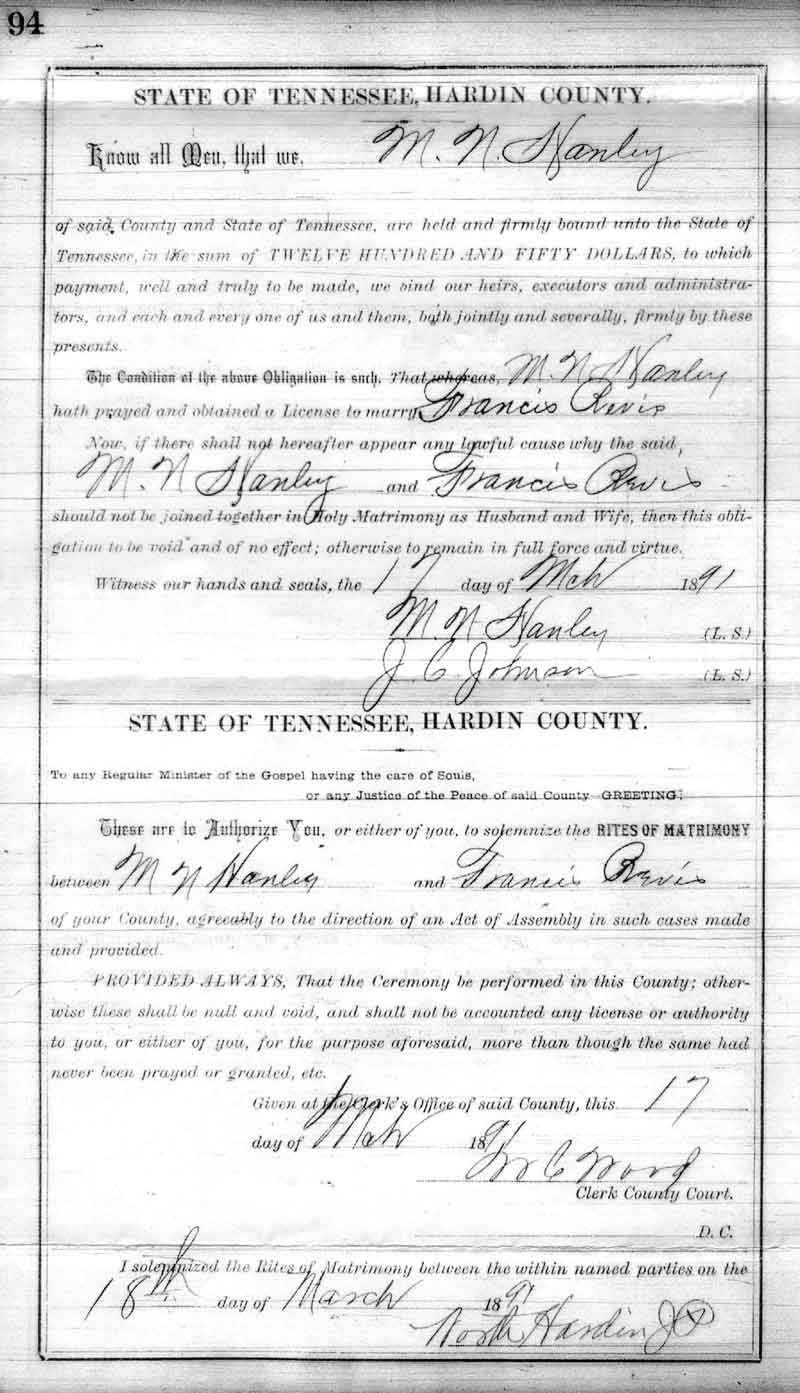 94
STATE OF TENNESSEE, HARDIN COUNTY.
Know all Men, that we, M. N. Hanley
of said County and State of Tennessee, are held and firmly bound unto the State of
Tennessee, in the sum of TWELVE HUNDRED AND FIFTY DOLLARS, to which
payment, well and truly to be made, we bind our heirs, executors and administra-
tors, and each and every one of us and them, both jointly and severally, firmly by these
presents.
The Condition of the above Obligation is such, That whereas, M. N. Hanley
hath prayed and obtained a License to marry Francis Revis
Now, if there shall not hereafter appear any lawful cause why the said,
M. N Hanley and Francis Revis
should not be joined together in Holy Matrimony as Husband and Wife, then this obli-
gation to be void and of no effect; otherwise to remain in full force and virtue.
Witness our hands and seals, the 17 day of Mch 1891
M. N Hanley (L. S.)
J. C. Johnson (L. S.)
STATE OF TENNESSEE, HARDIN COUNTY.
To any Regular Minister of the Gospel having the care of Souls,
or any Justice of the Peace of said County GREETING:
These are to Authorize You, or either of you, to solemnize the RITES OF MATRIMONY
between M N Hanley and Francis Revis
of your County, agreeably to the direction of an Act of Assembly in such cases made
and provided.
PROVIDED ALWAYS, That the Ceremony be performed in this County; other-
wise these shall be null and void, and shall not be accounted any license or authority
to you, or either of you, for the purpose aforesaid, more than though the same had
never been prayed or granted, etc.
Given at the Clerk's Office of said County, this 17
day of Mch 1891
C Word
Clerk County Court.
D. C.
I solemnized the Rites of Matrimony between the within named parties on the
18th day of March 1891
North Hardin JP